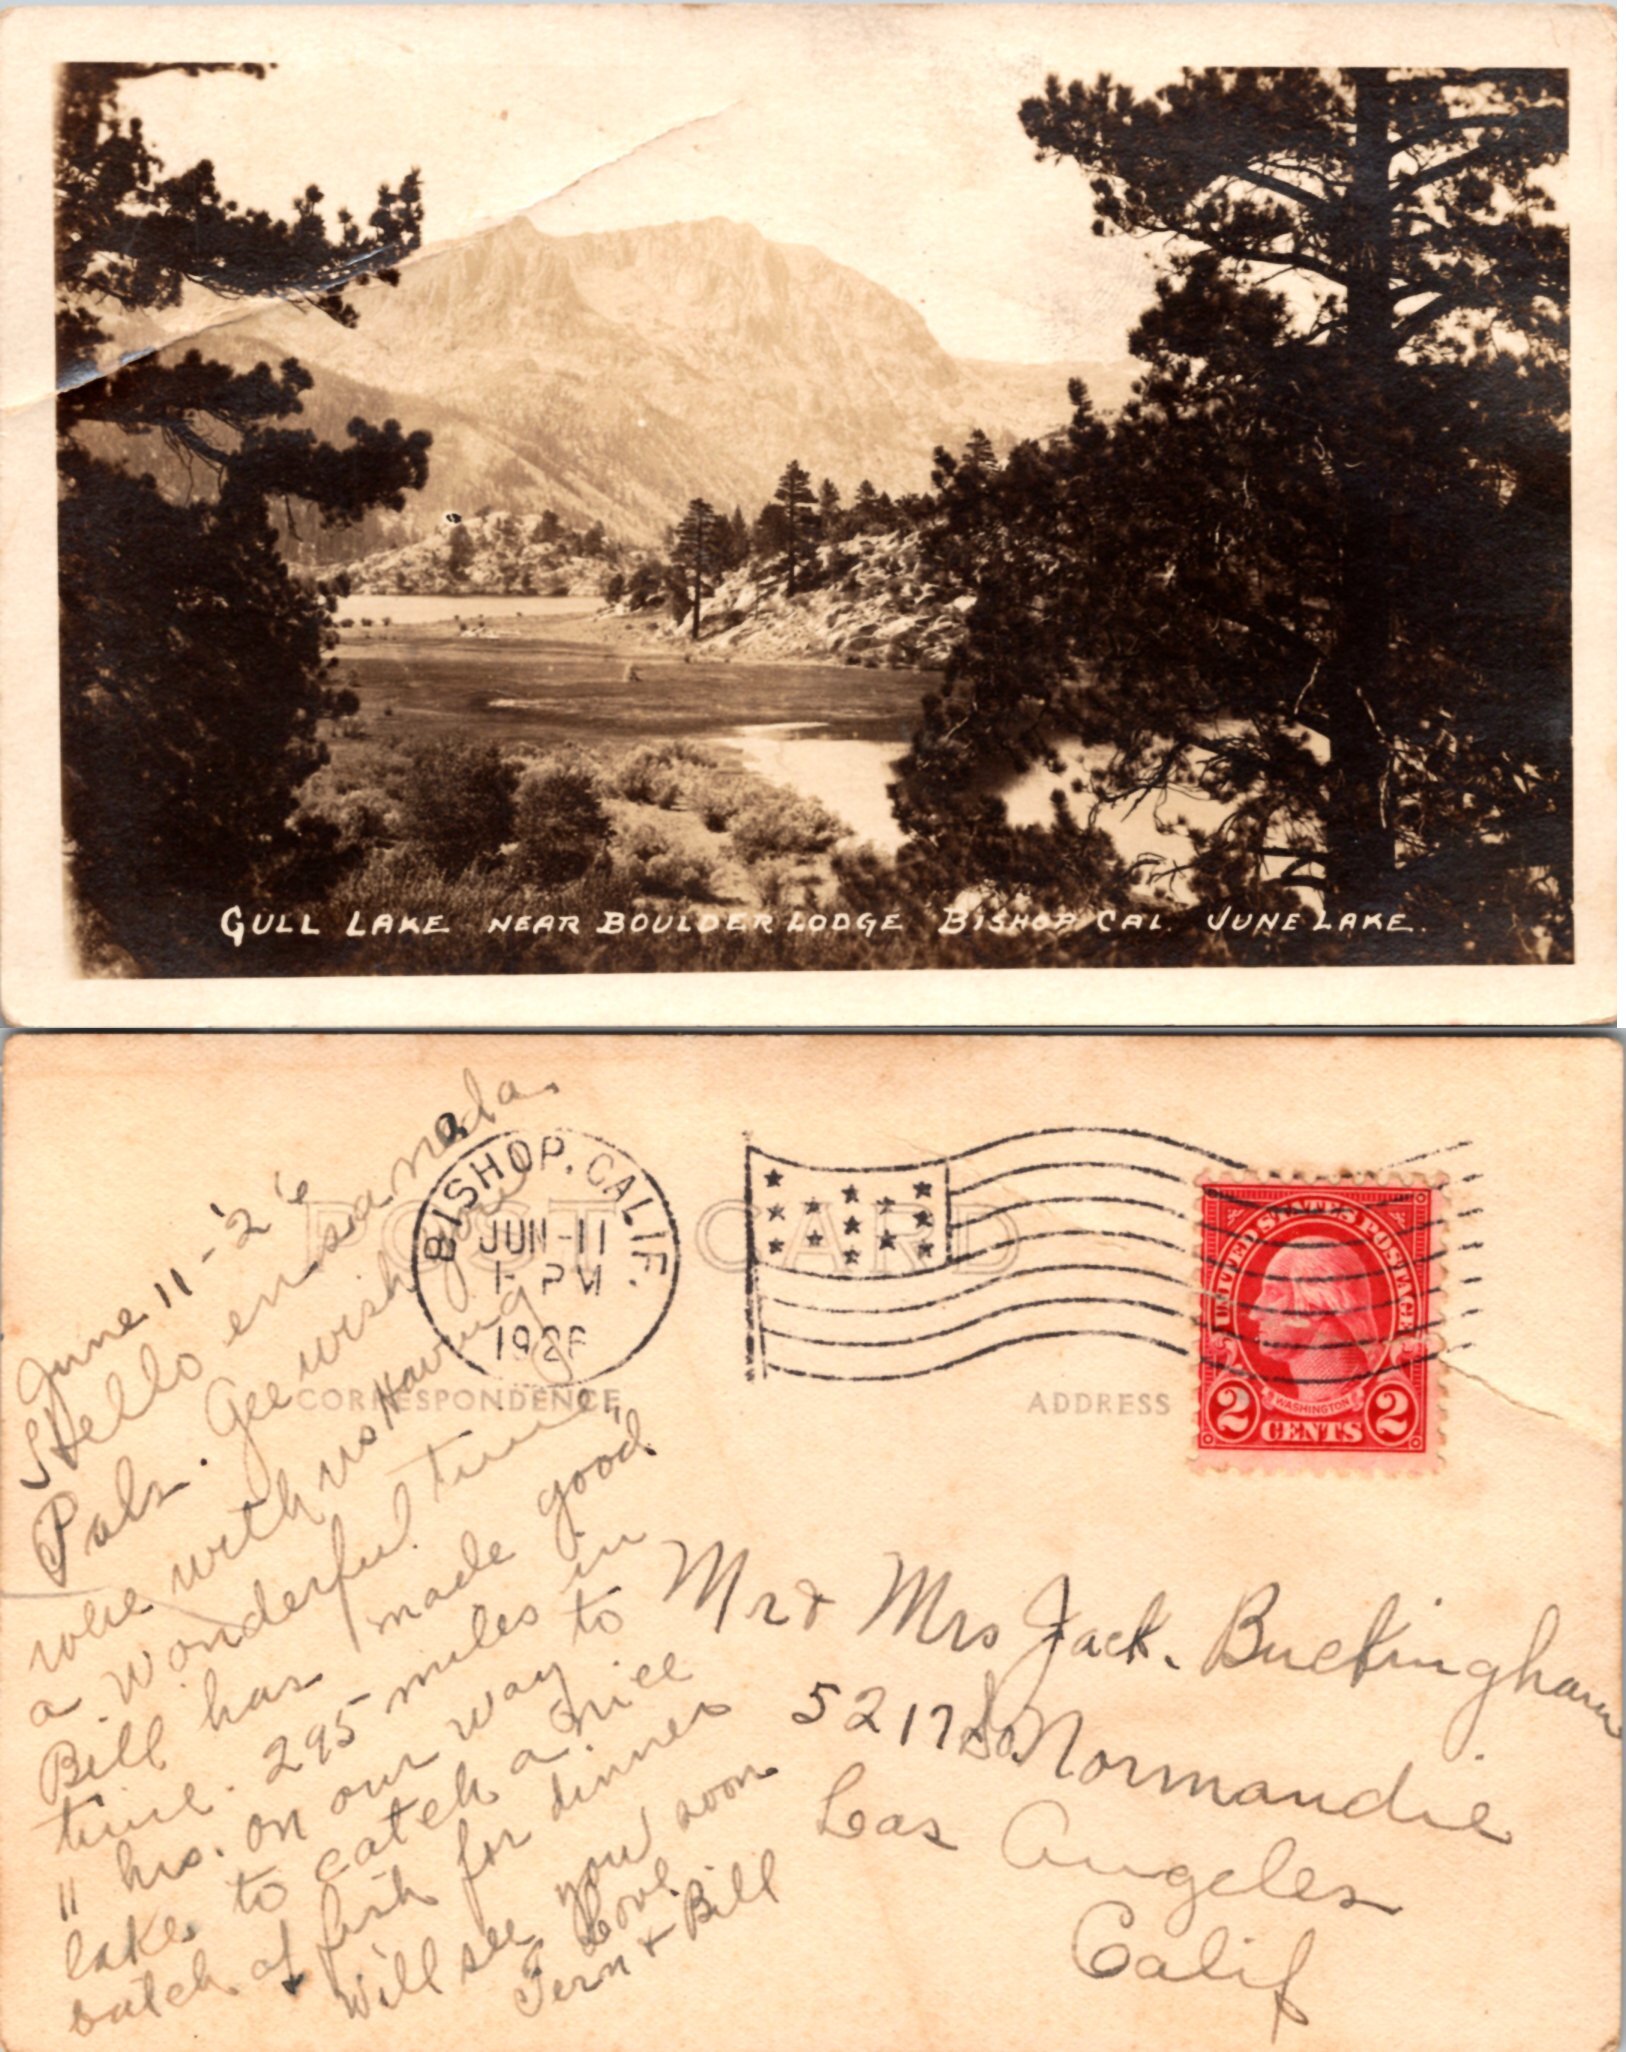 GULL LAKE NEAR BOULDER LODGE BISHOP CAL. JUNE LAKE.
POST CARD
BISHOP, CALIF.
JUN-11
1- PM
1926
UNITED STATES POSTAGE
WASHINGTON
2 CENTS 2
CORRESPONDENCE
ADDRESS
June 11-'26
Hello ensanada
Pals. Gee wish you
were with us Having
a wonderful time
Bill has made good
time. 295 miles in
11 hrs. on our way to
lake to catch a nice
batch of fish for dinner
Will see you soon
Love
Fern + Bill
Mr & Mrs Jack. Buckingham
5217 So Normandie
Los Angeles
Calif